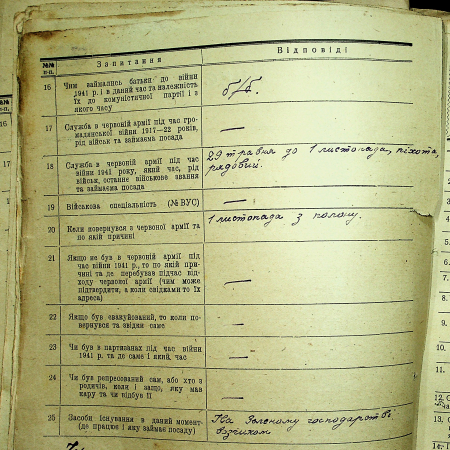 №№ п-п.
Запитання
Відповіді
16
Чим займались батьки до війни
1941 р. і в даний час та належність
їх до комуністичної партії і з
якого часу
б/б.
17
Служба в червоній армії під час гро-
мадянської війни 1917—22 років,
рід військ та займаєма посада
—
18
Служба в червоній армії під час
війни 1941 року, який час, рід
військ, останнє військове звання
та займаєма посада
29 травня до 1 листопада, піхота,
рядовий.
19
Військова спеціяльність (№ ВУС)
—
20
Коли повернувся з червоної армії та
по якій причині
1 листопада з полону.
21
Якщо не був в червоній армії під
час війни 1941 р., то по якій при-
чині та де перебував підчас від-
ходу червоної армії (чим може
підтвердити, а коли свідками то їх
адреса)
—
22
Якщо був евакуйований, то коли по-
вернувся та звідки саме
—
23
Чи був в партизанах під час війни
1941 р. та де саме і який, час
—
24
Чи був репресований сам, або хто з
родичів, коли і защо, яку мав
кару та чи відбув її
—
25
Засоби існування в даний момент
(де працює і яку займає посаду)
На Зеленому господарстві
візником
16
17
1
5.
6.
7.
8.
9.
10.
11.
12.
13.
14.